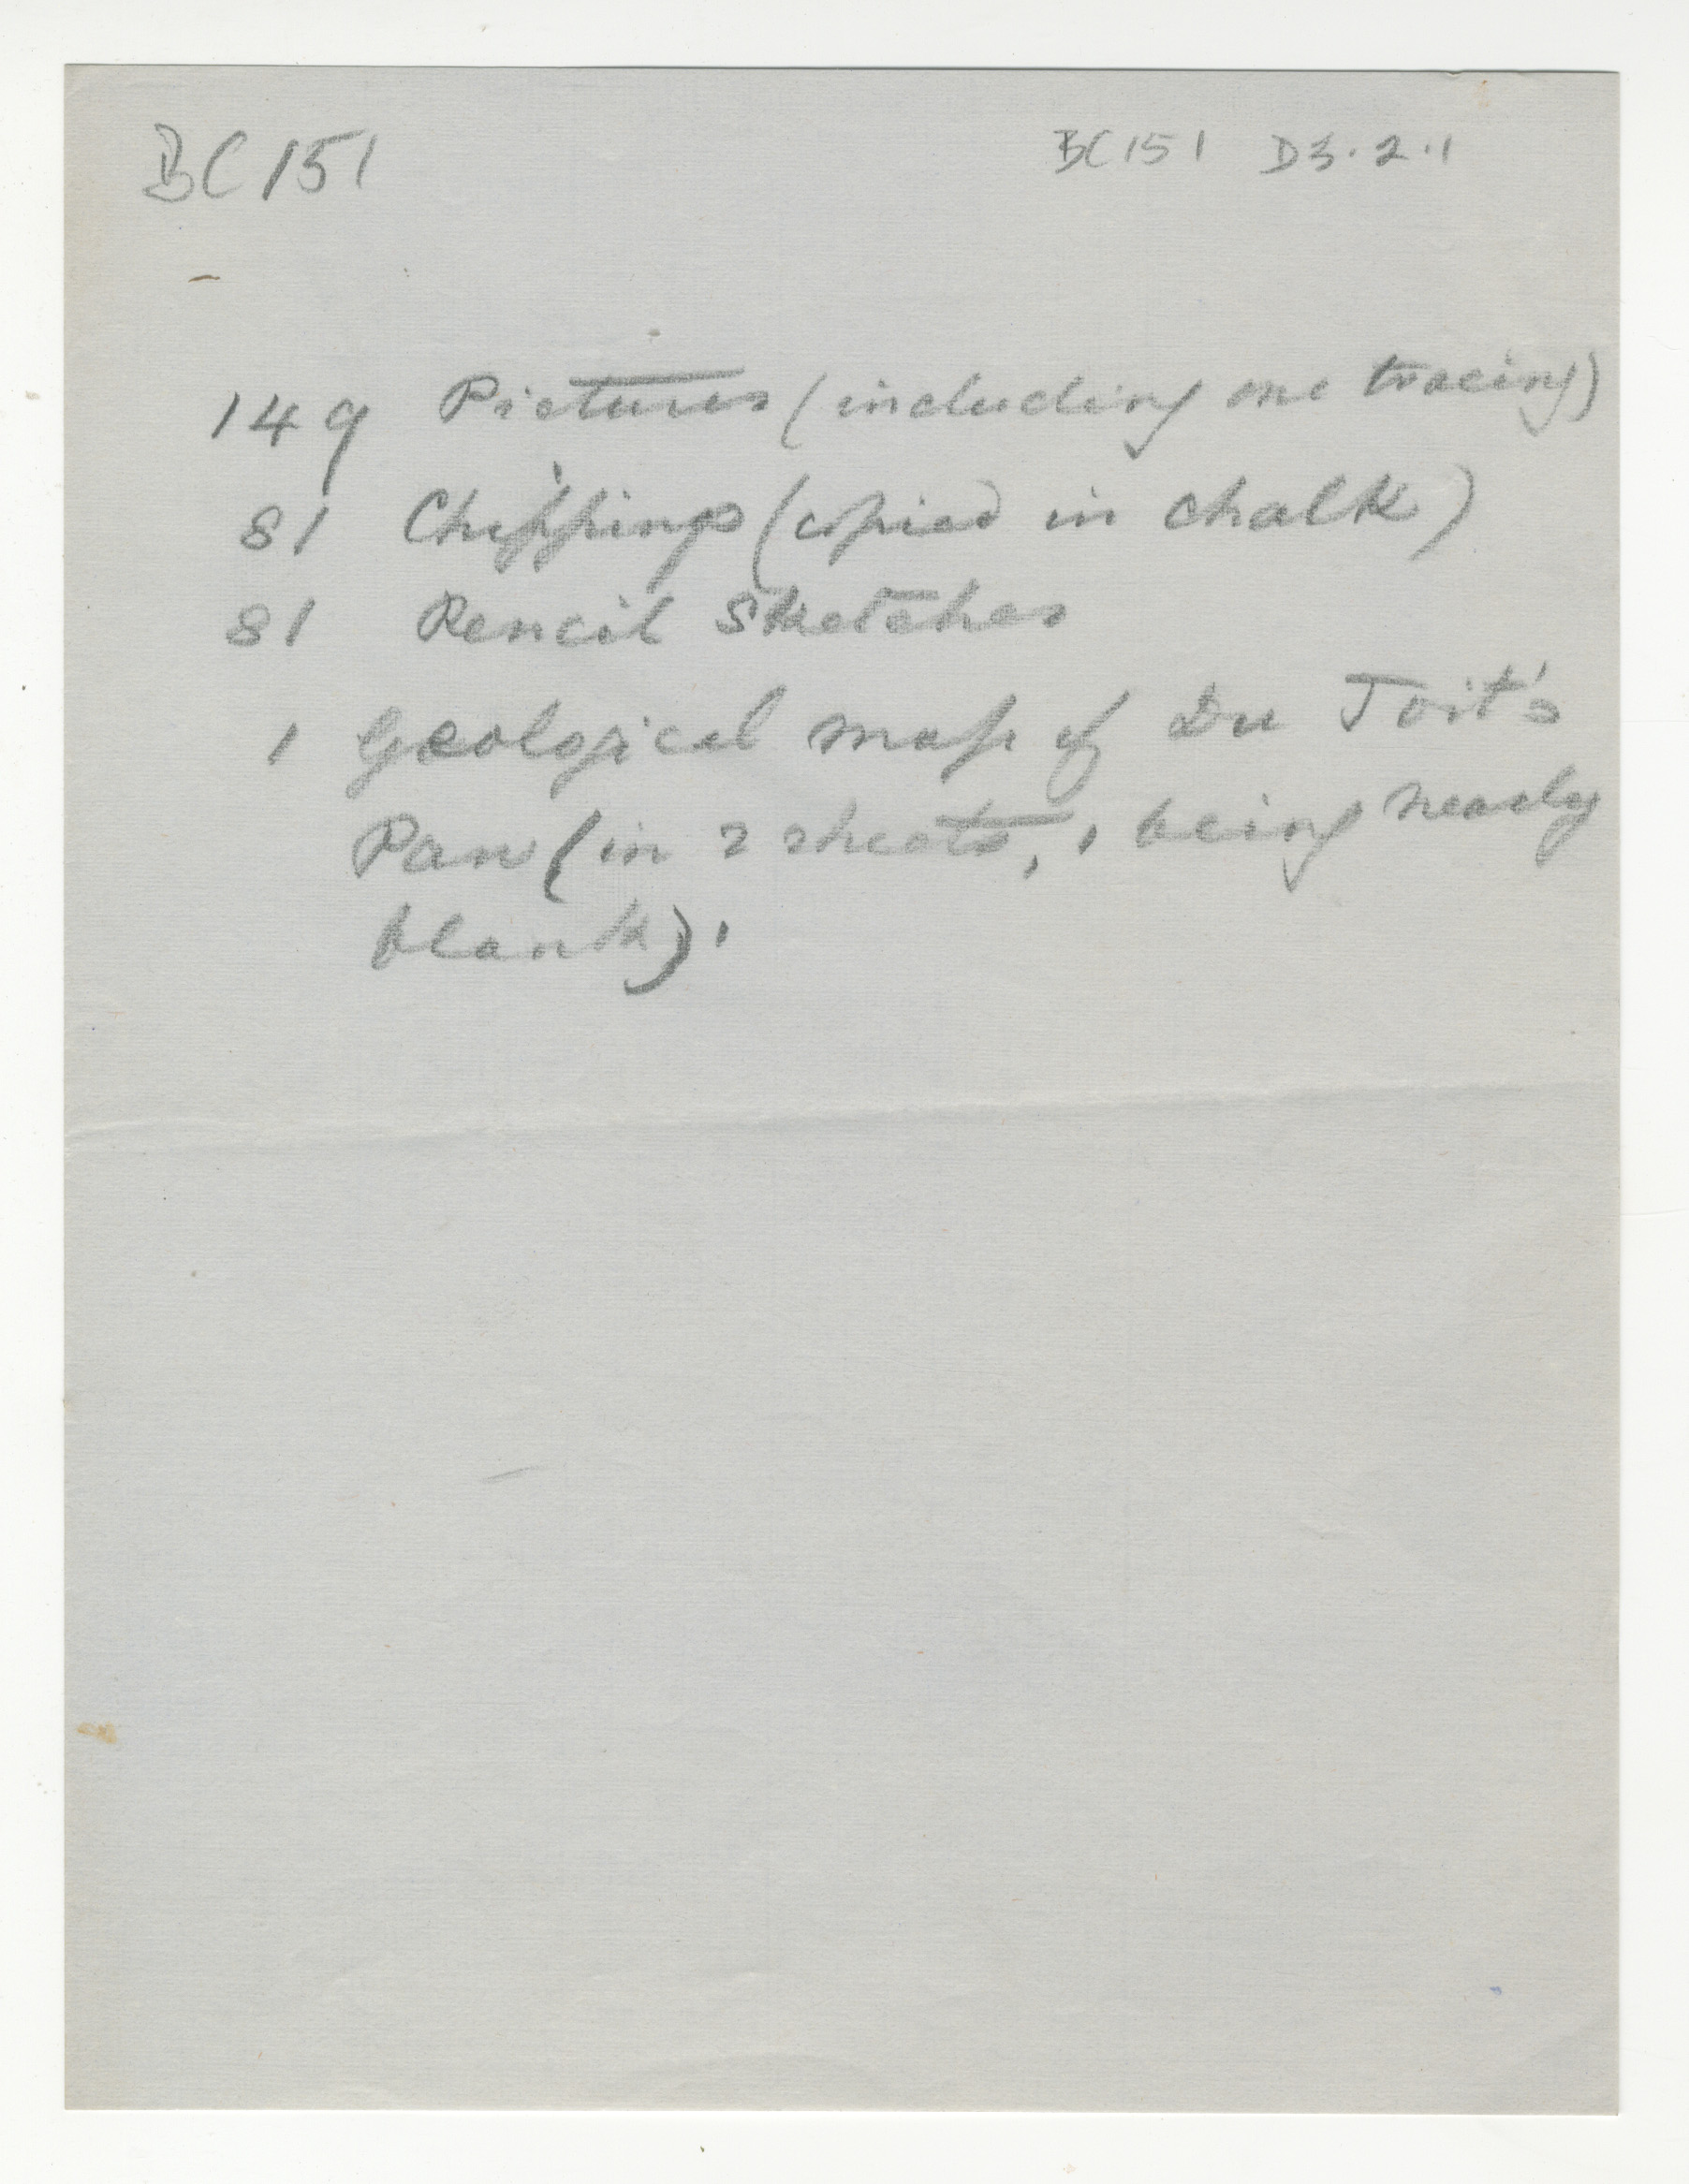 BC 151
BC 151 D3.2.1
149 Pictures (including one tracing)
81 Chippings (copied in chalk)
81 Pencil Sketches
1 Geological map of Du Toit's
Pan (in 2 sheets, 1 being nearly
blank).